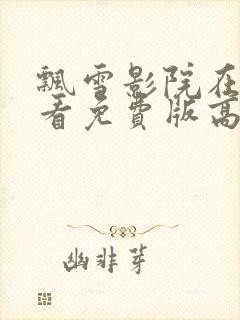 飘雪影院在
看免费版高
幽非芽